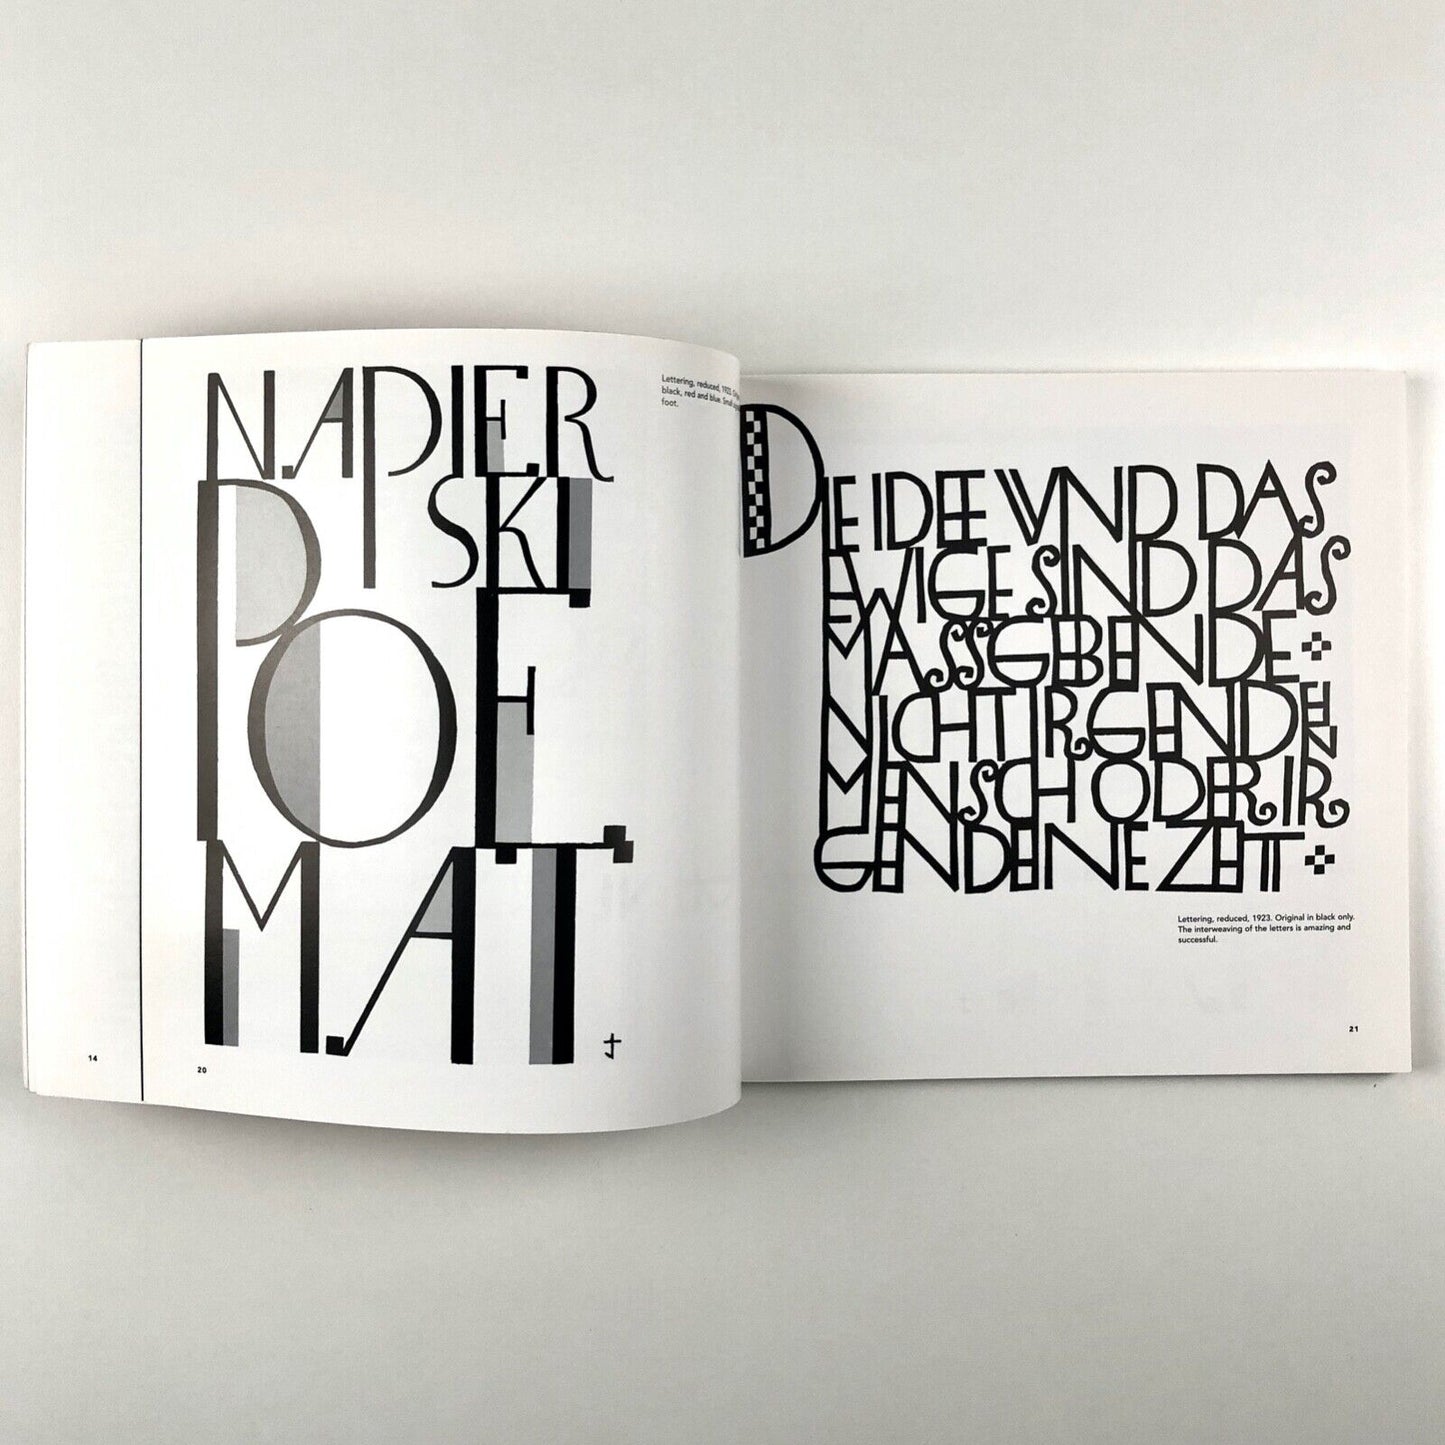 NAPIER
SKI
POE
MAT
Lettering, reduced, 1923.
black, red and blue.
foot.
14
20
DIE IDEE VND DAS
EWIGE SIND DAS
MASSGEBENDE
NICHT IRGENDEN
MENSCH ODER IR
GENDEINE ZEIT
Lettering, reduced, 1923. Original in black only.
The interweaving of the letters is amazing and
successful.
21